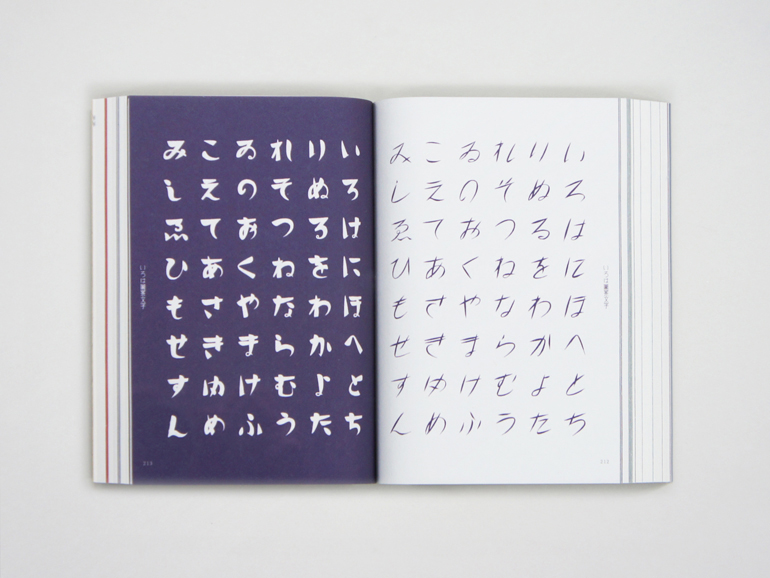 いろはにほへとち
りぬるをわかよた
れそつねならむう
ゐのおくやまけふ
こえてあさきゆめ
みしゑひもせすん
いろはにほへとち
りぬるをわかよた
れそつねならむう
ゐのおくやまけふ
こえてあさきゆめ
みしゑひもせすん